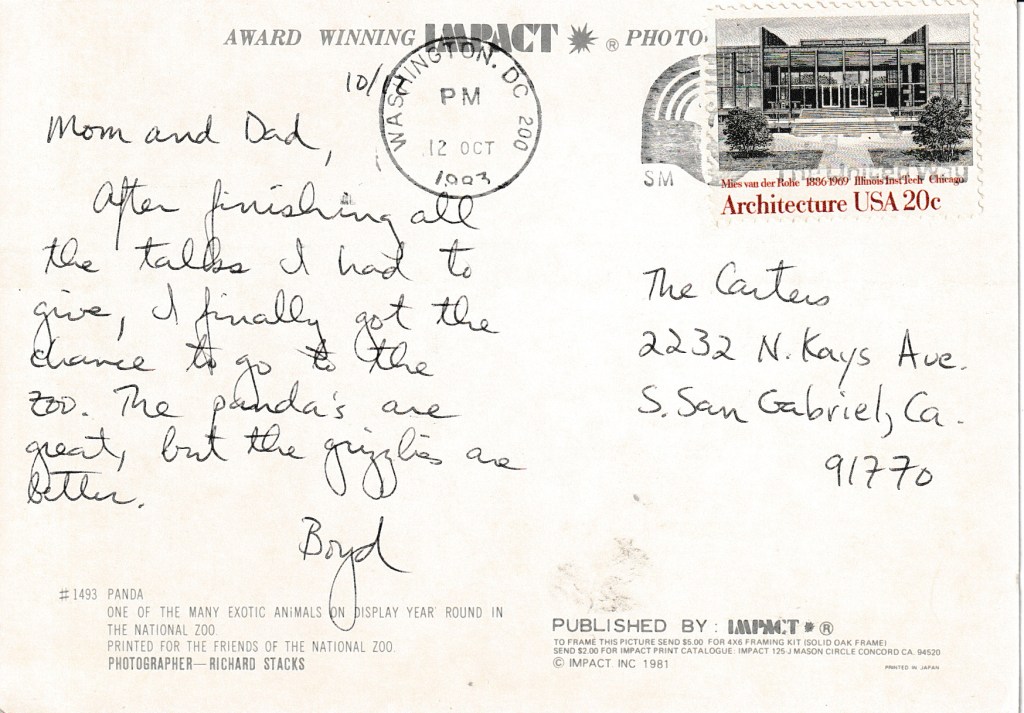 AWARD WINNING IMPACT ® PHOTO
10/12
WASHINGTON, DC 200
PM
12 OCT
SM
Mies van der Rohe 1886 1969 Illinois Inst Tech Chicago
Architecture USA 20c
Mom and Dad,
After finishing all
the talks I had to
give, I finally got the
chance to go to the
zoo. The panda's are
great, but the grizzlies are
better.
Boyd
The Carters
2232 N. Kays Ave.
S. San Gabriel, Ca.
91770
#1493 PANDA
ONE OF THE MANY EXOTIC ANIMALS ON DISPLAY YEAR ROUND IN
THE NATIONAL ZOO.
PRINTED FOR THE FRIENDS OF THE NATIONAL ZOO.
PHOTOGRAPHER—RICHARD STACKS
PUBLISHED BY: IMPACT ®
TO FRAME THIS PICTURE SEND $5.00 FOR 4X6 FRAMING KIT (SOLID OAK FRAME)
SEND $2.00 FOR IMPACT PRINT CATALOGUE: IMPACT 125-J MASON CIRCLE CONCORD CA. 94520
© IMPACT. INC 1981
PRINTED IN JAPAN